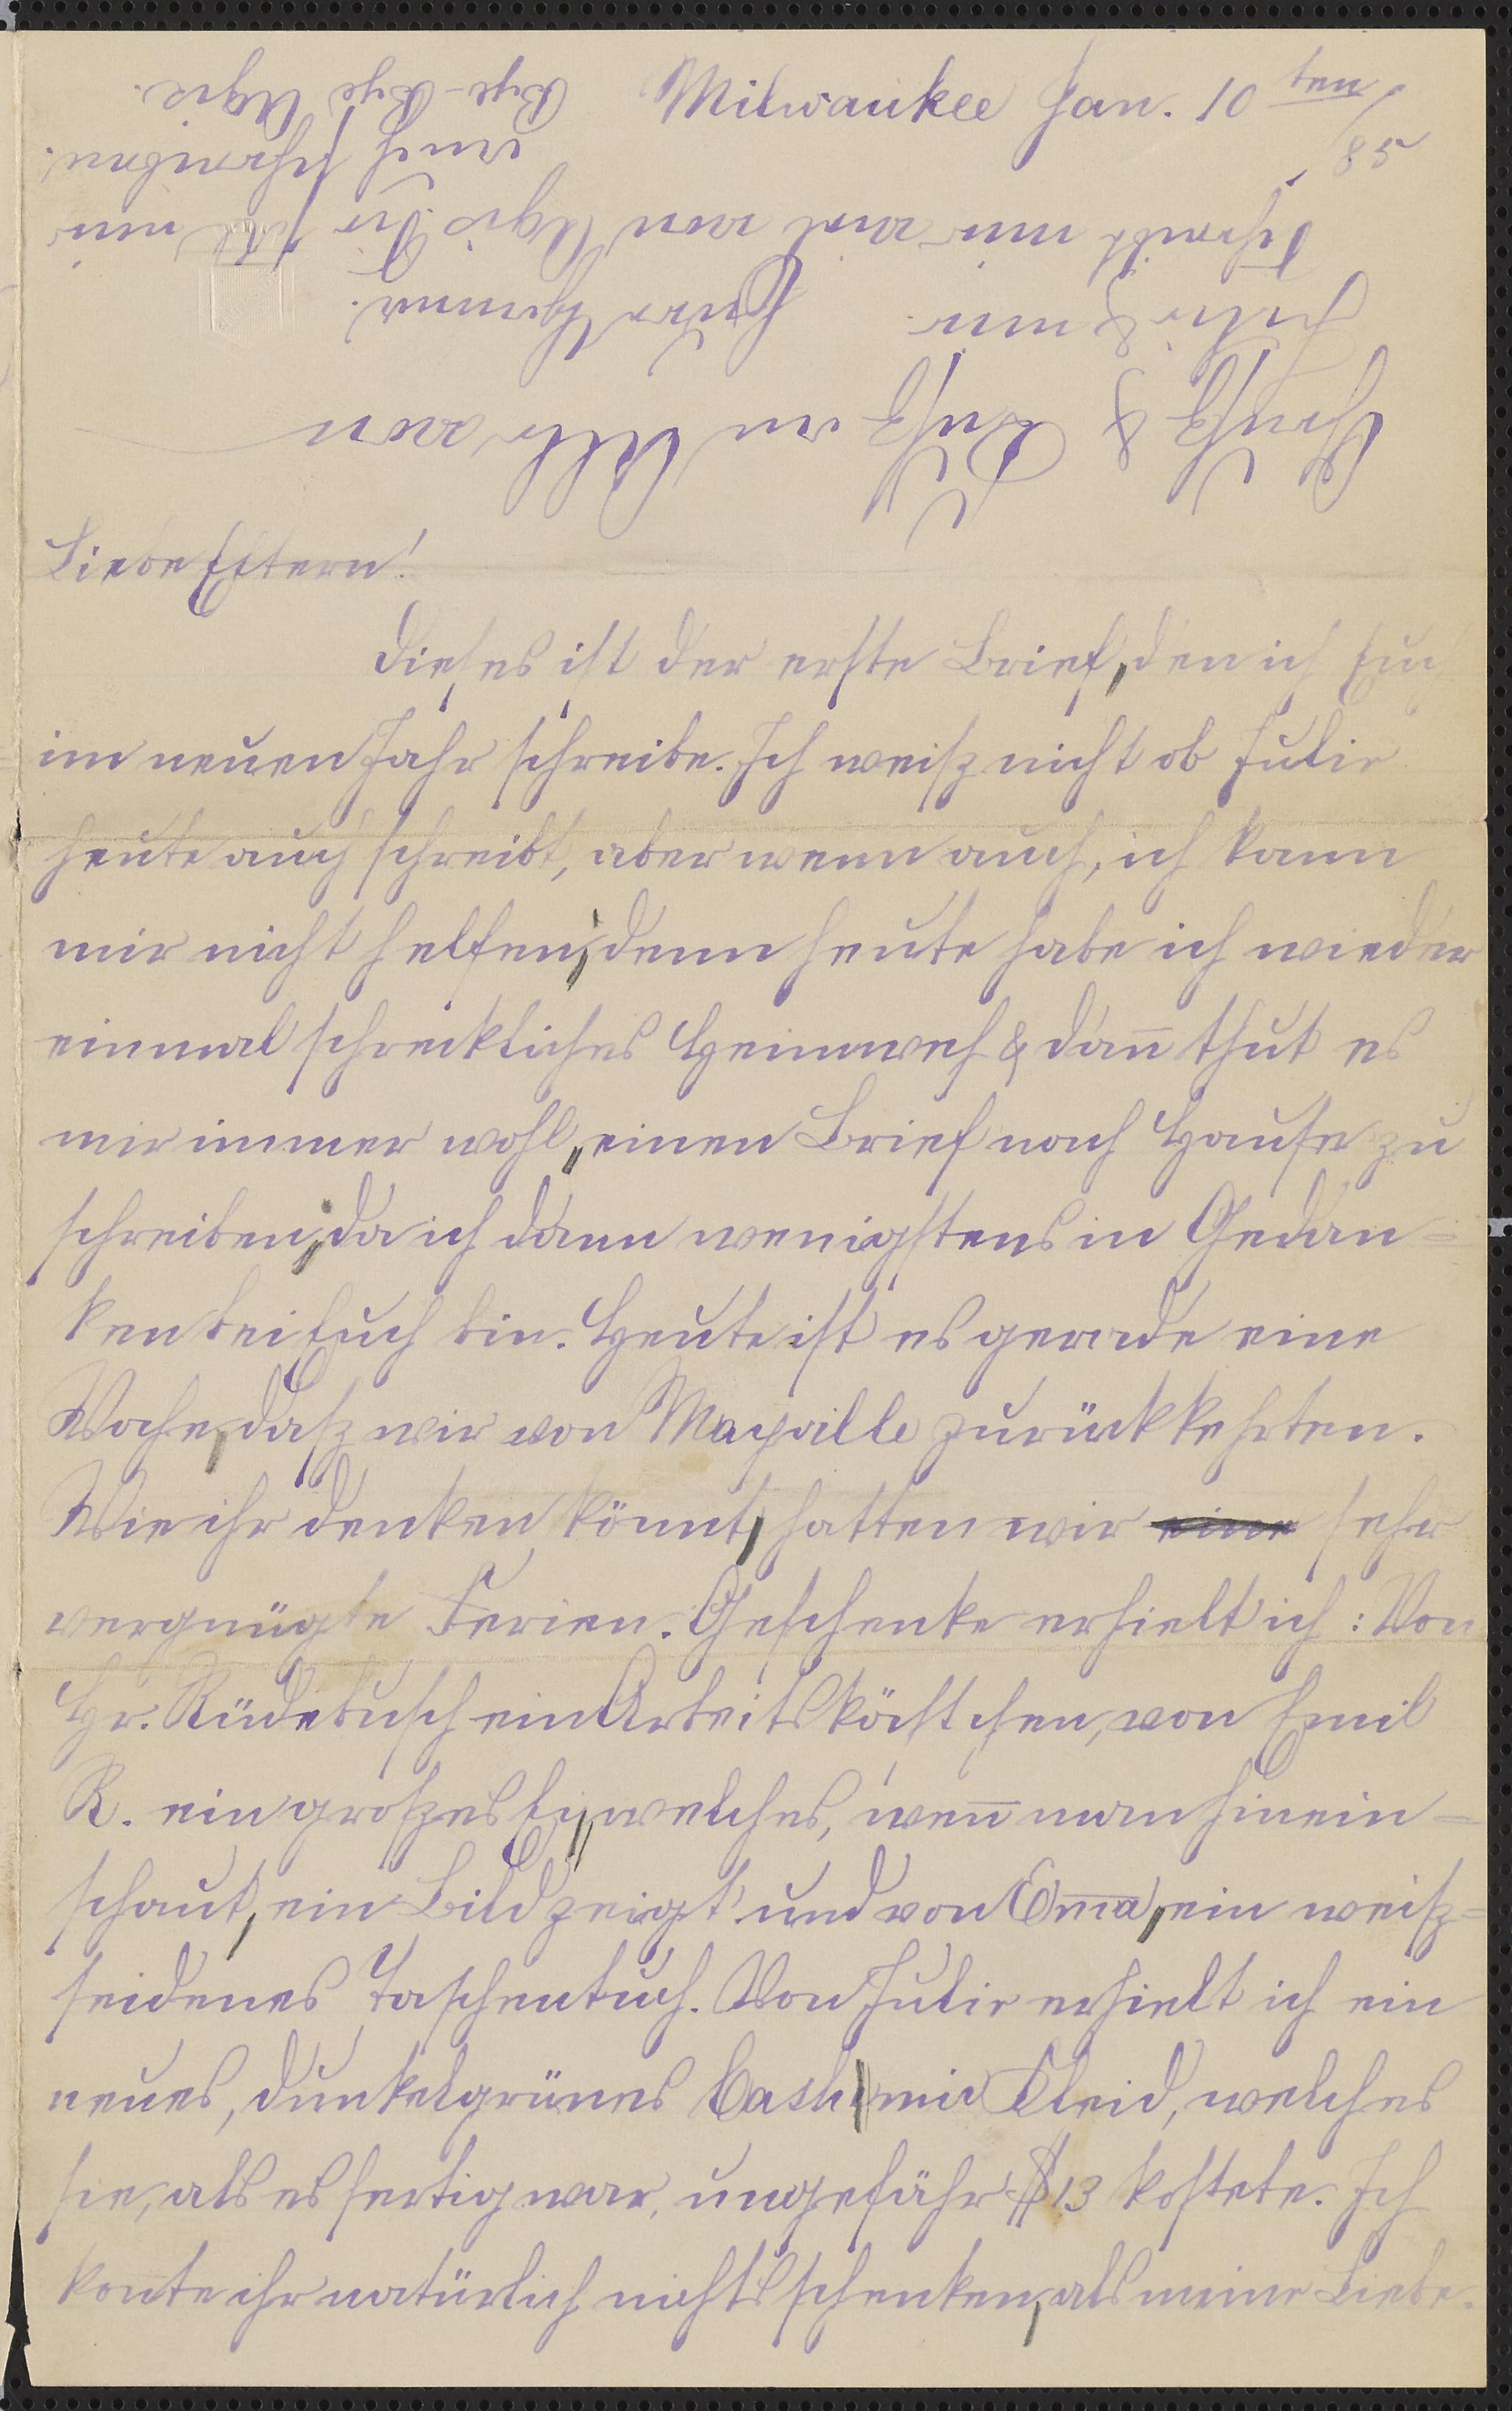 Milwaukee Jan. 10ten/85
Liebe Eltern!
Dieses ist der erste Brief, den ich Euch
im neuen Jahr schreibe. Ich weisz nicht ob Julie
heute auch schreibt, aber wenn auch, ich kann
mir nicht helfen, denn heute habe ich wieder
einmal schreckliches Heimweh & dan̅ thut es
mir immer wohl, einen Brief nach Hause zu
schreiben, da ich dann wenigstens in Gedan=
ken bei Euch bin. Heute ist es gerade eine
Woche, dasz wir von Mayville zurückkehrten.
Wie ihr denken könnt, hatten wir eine sehr
vergnügte Ferien. Geschenke erhielt ich: Von
Hr. Rüdebusch ein Arbeitskästchen, von Emil
R. ein groszes Ei, welches, wen̅ man hinein=
schaut, ein Bild zeigt und von Em̅a, ein weisz=
seidenes Taschentuch. Von Julie erhielt ich ein
neues, dunkelgrünes Cashmir Kleid, welches
sie, als es fertig war, ungefähr $13 kostete. Ich
konnte ihr natürlich nichts schenken, als meine Liebe.
Grusz & Kusz an Alle von
Julie & mir. Eure
Schreibt mir viel von Ugis. Die soll mir
auch schreiben.
Bye-Bye Ugis.